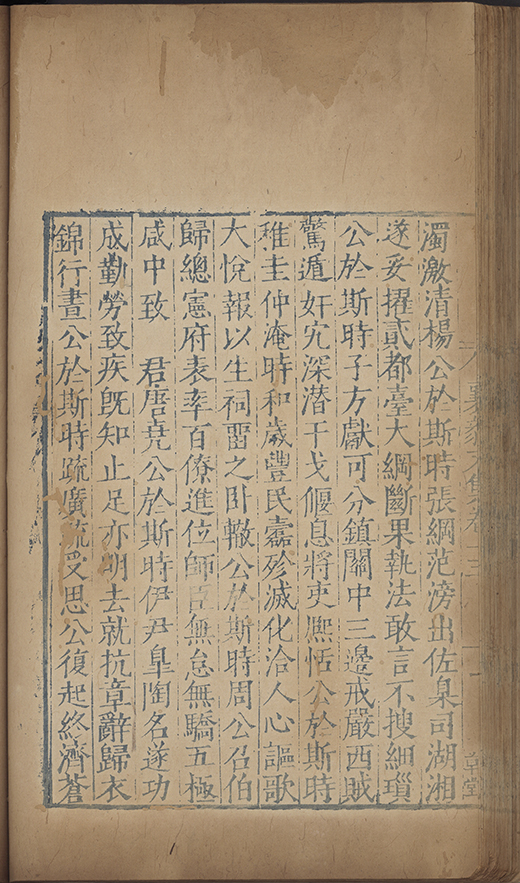 濁激清楊公於斯時張綱范滂出佐臬司湖湘
遂妥擢貳都臺大綱斷果執法敢言不搜細瑣
公於斯時子方獻可分鎮關中三邊戒嚴西賊
驚遁奸宄深潜干戈偃息將吏熈恬公於斯時
稚圭仲淹時和歲豐民蠧殄滅化洽人心謳歌
大悅報以生祠畱之卧轍公於斯時周公召伯
歸總憲府表率百僚進位師臣無怠無驕五極
咸中致 君唐堯公於斯時伊尹臯陶名遂功
成勤勞致疾旣知止足亦明去就抗章辭歸衣
錦行晝公於斯時疏廣疏受思公復起終濟蒼
襄毅文集卷
草堂